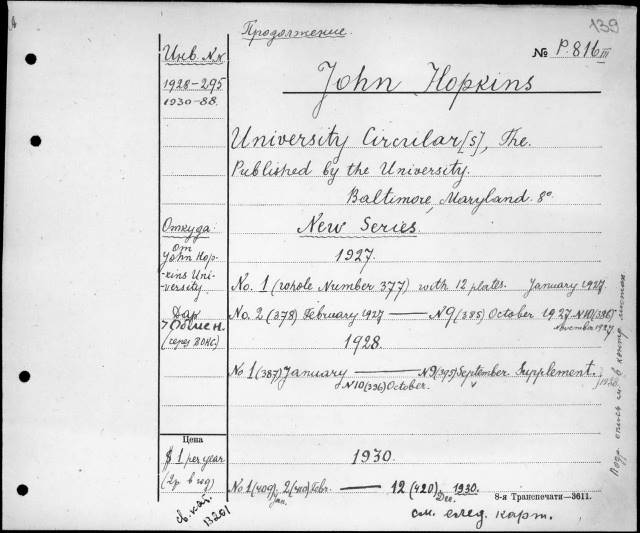 Продолжение.
139
Инв. №№
1928-295
1930-88.
№ P.816 III
John Hopkins
University Circular[s], The.
Published by the University.
Baltimore, Maryland. 8°
Откуда:
от
John Hop-
-kins Uni-
-versity.
Дар
> Обмен.
(через ВОКС)
New Series.
1927.
No. 1 (whole Number 377) with 12 plates. January 1927.
No. 2 (378) February 1927 — N9 (385) October 1927. N10 (386)
November 1927.
1928.
No 1 (387) January — N9 (395) September Supplement.
N10 (396) October.
1928.
Цена
$ 1 per year
(2р в год)
1930.
No 1 (409) Jan. 2 (410) Febr. — 12 (420) Dec. 1930.
8-я Транспечати—3611.
см. след. карт.
св. кат.
13201
опись см. в контр. листах